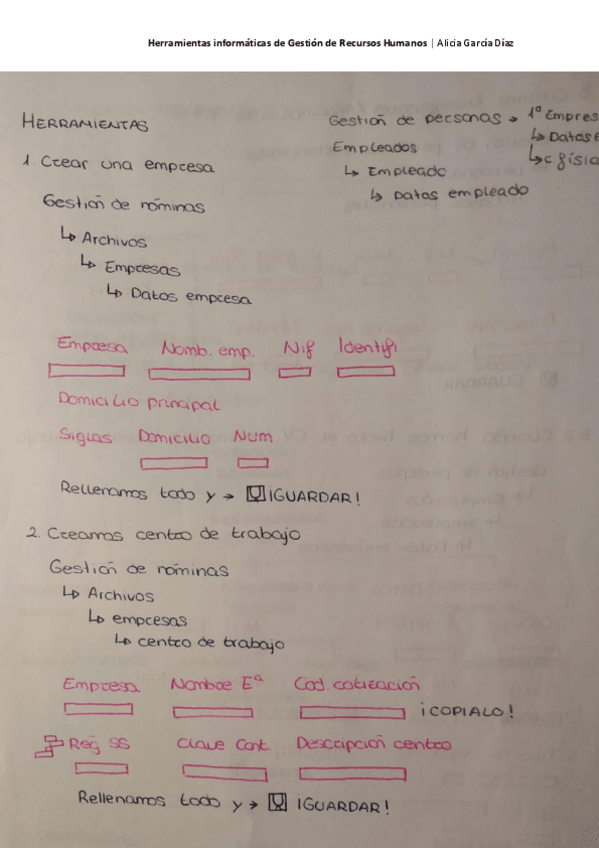 Herramientas informáticas de Gestión de Recursos Humanos | Alicia García Díaz
HERRAMIENTAS
Gestión de personas → 1º Empres
↳ Datos e
↳ c físic
Empleados
↳ Empleado
↳ Datos empleado
1. Crear una empresa
Gestión de nóminas
↳ Archivos
↳ Empresas
↳ Datos empresa
Empresa Nomb. emp. Nif Identif
Domicilio principal
Siglas Domicilio Num.
Rellenamos todo y → ¡GUARDAR!
2. Creamos centro de trabajo
Gestión de nóminas
↳ Archivos
↳ empresas
↳ centro de trabajo
Empresa Nombre Eª Cod. cotización
¡COPIALO!
Reg SS Clave Cont. Descripción centro
Rellenamos todo y → ¡GUARDAR!